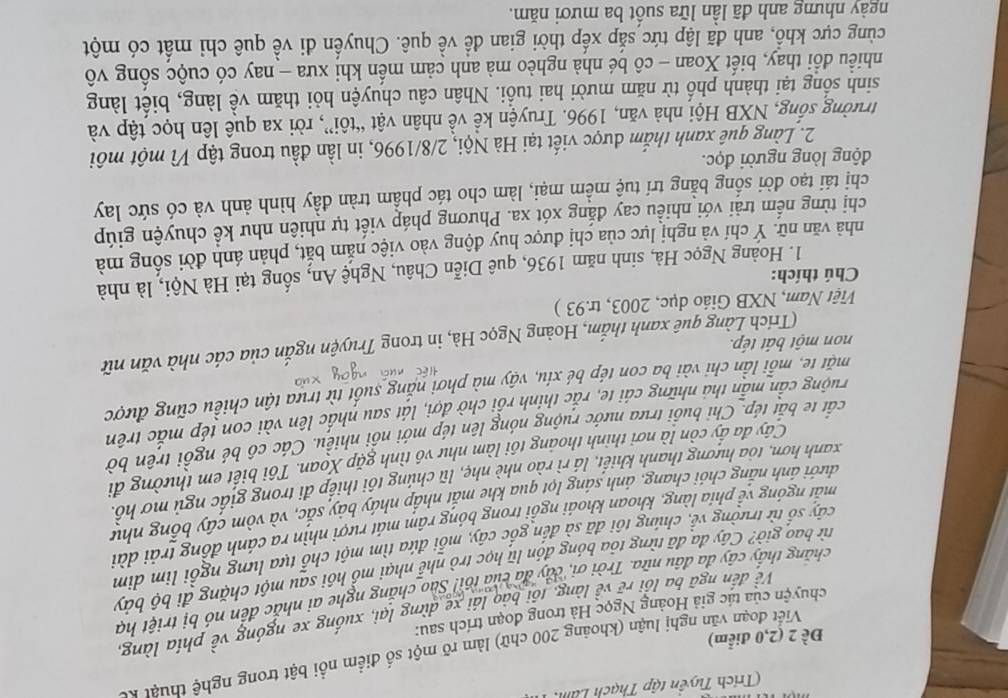 (Trích Tuyển tập Thạch Lam,
Đề 2 (2,0 điểm)
Viết đoạn văn nghị luận (khoảng 200 chữ) làm rõ một số điểm nổi bật trong nghệ thuật kể
chuyện của tác giả Hoàng Ngọc Hà trong đoạn trích sau:
Về đến ngã ba lối rẽ về làng, tôi bảo lái xe dừng lại, xuống xe ngóng về phía làng,
chẳng thấy cây đa đâu nữa. Trời ơi, cây đa của tôi! Sao chẳng nghe ai nhắc đến nó bị triệt hạ
từ bao giờ? Cây đa đã từng tỏa bóng đón lũ học trò nhễ nhại mồ hôi sau một chặng đi bộ bảy
cây số từ trường về, chúng tôi đã sà đến gốc cây, mỗi đứa tìm một chỗ tựa lưng ngồi lim dim
mắt ngóng về phía làng, khoan khoái ngồi trong bóng râm mát rượi nhìn ra cánh đồng trải dài
dưới ánh nắng chói chang, ánh sáng lọt qua khe mắt nhấp nháy bảy sắc, và vòm cây bỗng như
xanh hơn, tỏa hương thanh khiết, lá rì rào nhè nhẹ, lũ chúng tôi thiếp đi trong giấc ngủ mơ hồ.
Cây đa ấy còn là nơi thỉnh thoảng tôi làm như vô tình gặp Xoan. Tôi biết em thường đi
cất te bắt tép. Chỉ buổi trưa nước ruộng nóng lên tép mới nổi nhiều. Các cô bé ngồi trên bờ
ruộng cần mẫn thả những cái te, rắc thính rồi chờ đợi, lát sau nhấc lên vài con tép mắc trên
mặt te, mỗi lần chỉ vài ba con tép bé xíu, vậy mà phơi nắng suốt từ trưa tận chiều cũng được
non một bát tép.
tiếc nuối ngày xưa
(Trích Làng quê xanh thắm, Hoàng Ngọc Hà, in trong Truyện ngắn của các nhà văn nữ
Việt Nam, NXB Giáo dục, 2003, tr.93 )
Chú thích:
1. Hoàng Ngọc Hà, sinh năm 1936, quê Diễn Châu, Nghệ An, sống tại Hà Nội, là nhà
nhà văn nữ. Ý chí và nghị lực của chị được huy động vào việc nắm bắt, phản ánh đời sống mà
chị từng nếm trải với nhiều cay đắng xót xa. Phương pháp viết tự nhiên như kể chuyện giúp
chị tái tạo đời sống bằng trí tuệ mềm mại, làm cho tác phẩm tràn đầy hình ảnh và có sức lay
động lòng người đọc.
2. Làng quê xanh thắm được viết tại Hà Nội, 2/8/1996, in lần đầu trong tập Vì một mối
trường sống, NXB Hội nhà văn, 1996. Truyện kể về nhân vật “tôi”, rời xa quê lên học tập và
sinh sống tại thành phố từ năm mười hai tuổi. Nhân câu chuyện hỏi thăm về làng, biết làng
nhiều đổi thay, biết Xoan – cô bé nhà nghèo mà anh cảm mến khi xưa – nay có cuộc sống vô
cùng cực khổ, anh đã lập tức sắp xếp thời gian để về quê. Chuyến đi về quê chỉ mất có một
ngày nhưng anh đã lần lữa suốt ba mươi năm.